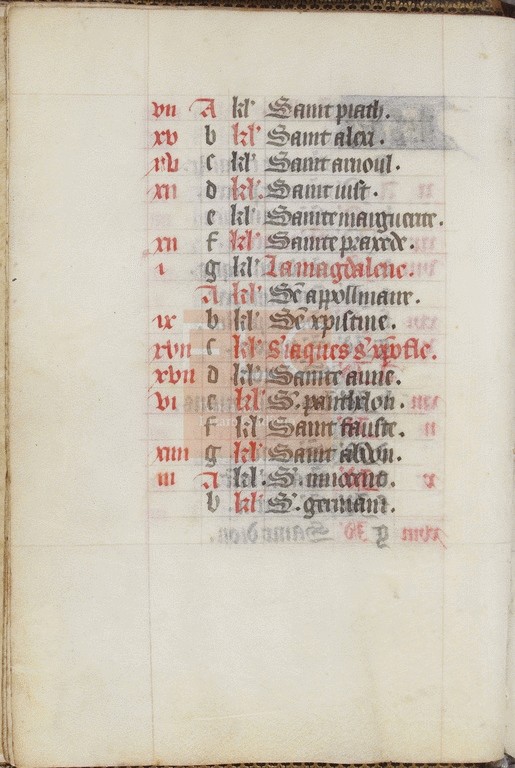 vii A kl' Saint piath.
xv b kl' Saint aleu.
c kl' Saint arnoul.
xii d kl'. Saint iust.
e kl' Sainte marguerite.
xii f kl' Sainte praxede.
i g kl' La magdalene.
A kl' Sc̄ appollinaire.
ix b kl' Sc̄ xpistine.
xvii c kl' S' iaques s' xp̄ofle.
xvii d kl' Sainte anne.
vi e kl' S'. panthelon.
f kl' Saint fauste.
xiiii g kl' Saint abdon.
iii A kl'. S'.
b kl' S'. germain.